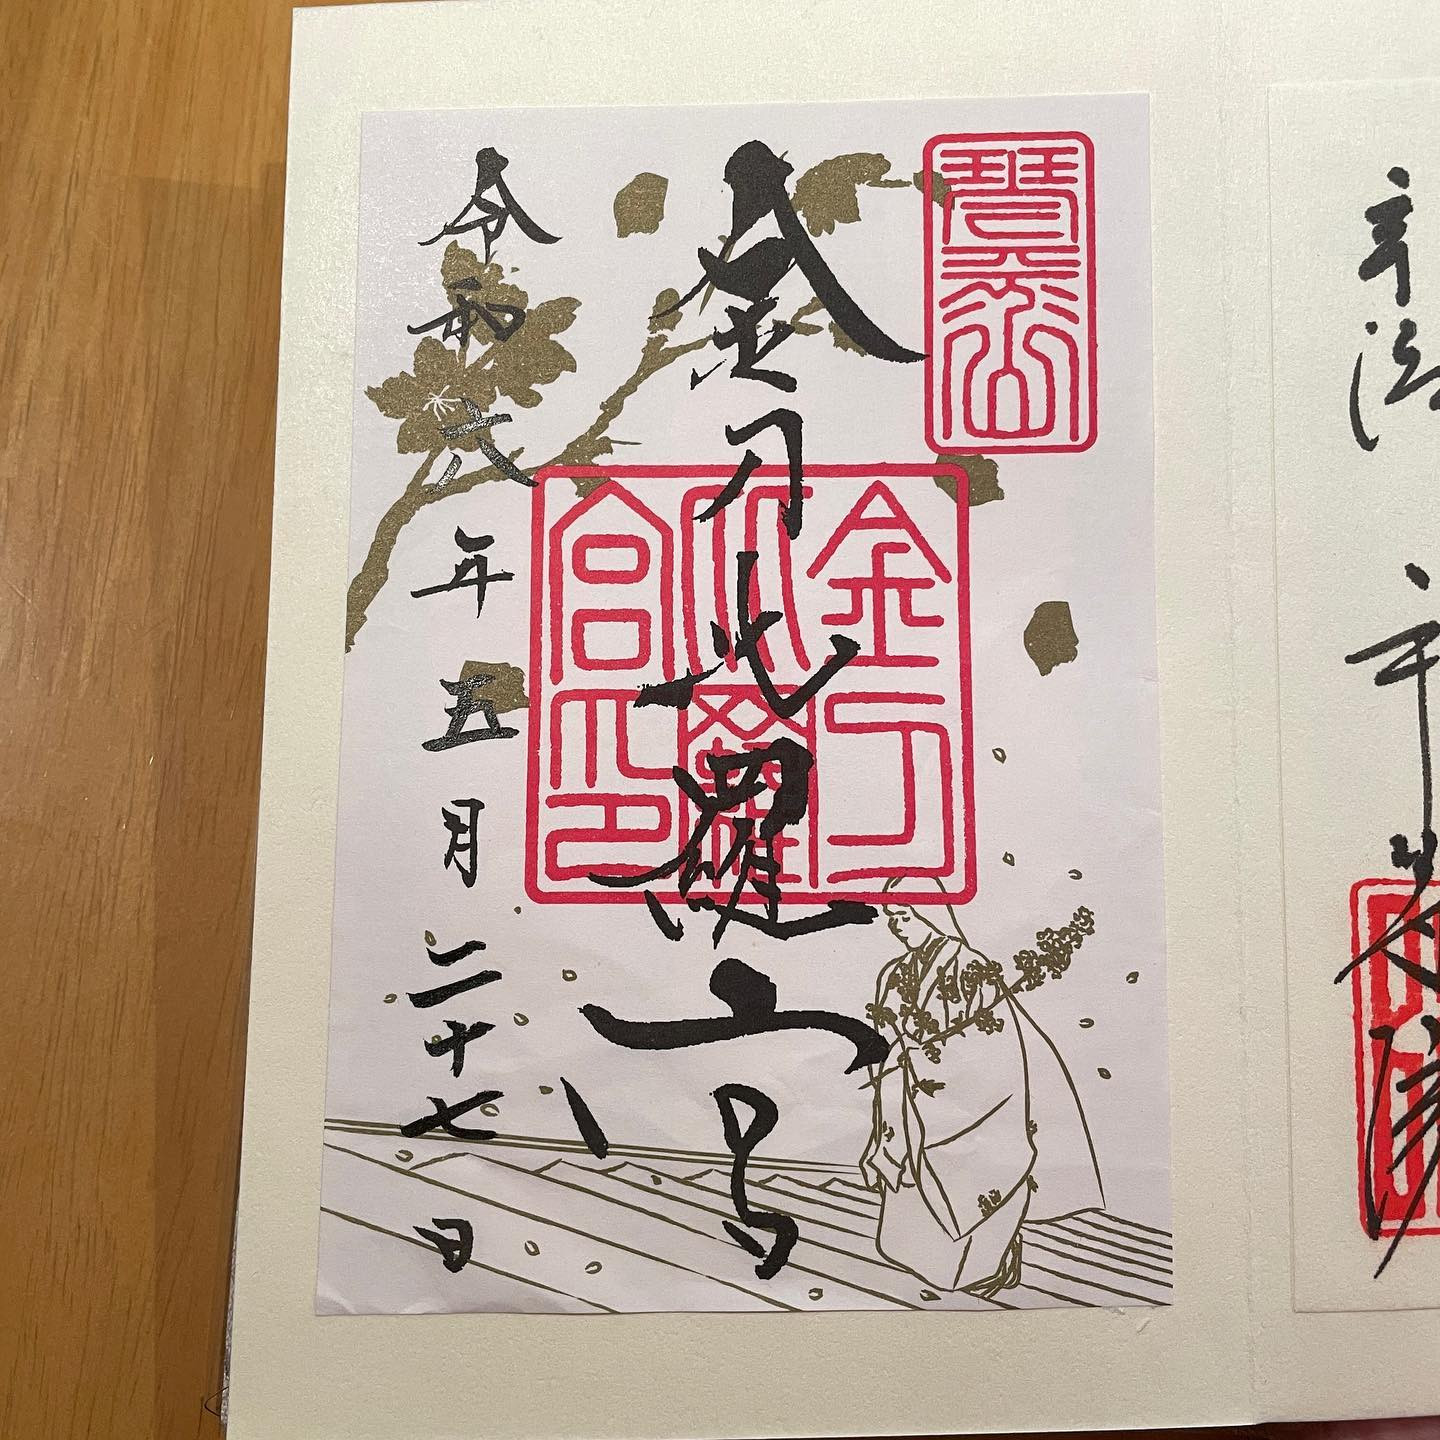 琴平山
金刀比羅宮
金刀比羅宮印
令和六年五月二十七日